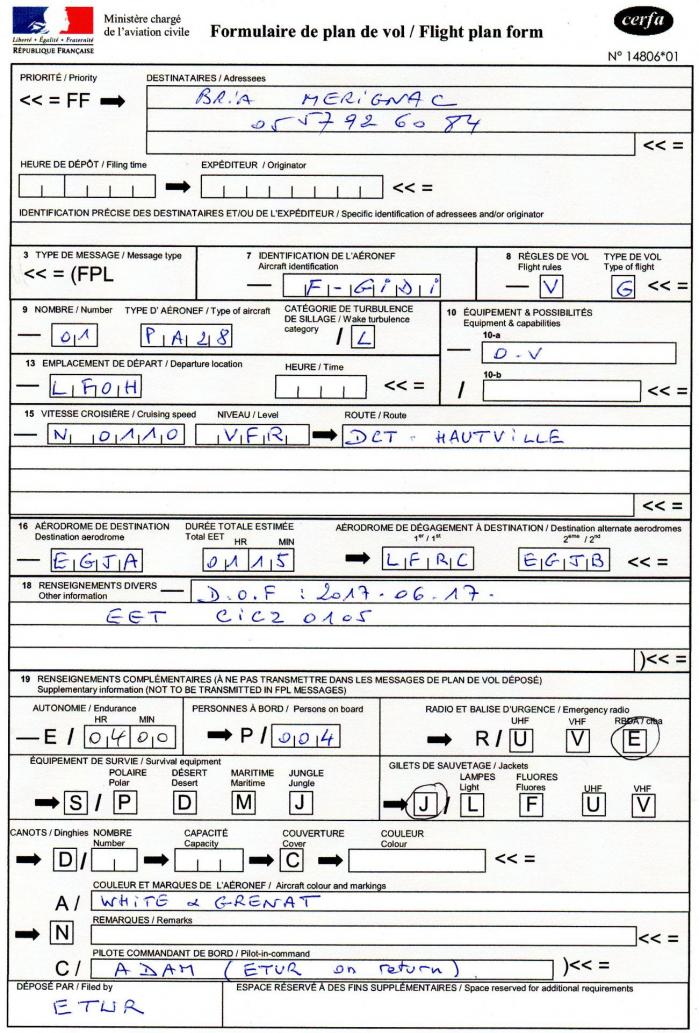 Liberté • Égalité • Fraternité
RÉPUBLIQUE FRANÇAISE
Ministère chargé
de l'aviation civile
Formulaire de plan de vol / Flight plan form
cerfa
N° 14806*01
PRIORITÉ / Priority
DESTINATAIRES / Adressees
<< = FF
BRIA MERIGNAC
05 57 92 60 84
<< =
HEURE DE DÉPÔT / Filing time
EXPÉDITEUR / Originator
<< =
IDENTIFICATION PRÉCISE DES DESTINATAIRES ET/OU DE L'EXPÉDITEUR / Specific identification of adressees and/or originator
3 TYPE DE MESSAGE / Message type
7 IDENTIFICATION DE L'AÉRONEF
Aircraft identification
8 RÈGLES DE VOL
Flight rules
TYPE DE VOL
Type of flight
<< = (FPL
— F-GIDI
— V
G << =
9 NOMBRE / Number
TYPE D' AÉRONEF / Type of aircraft
CATÉGORIE DE TURBULENCE
DE SILLAGE / Wake turbulence
category
— 01
PA28
/ L
10 ÉQUIPEMENT & POSSIBILITÉS
Equipment & capabilities
10-a
— O-V
10-b
/ << =
13 EMPLACEMENT DE DÉPART / Departure location
HEURE / Time
— LFOH
<< =
15 VITESSE CROISIÈRE / Cruising speed
NIVEAU / Level
ROUTE / Route
— N 0110
VFR
DCT - HAUTVILLE
<< =
16 AÉRODROME DE DESTINATION
Destination aerodrome
DURÉE TOTALE ESTIMÉE
Total EET
HR MIN
AÉRODROME DE DÉGAGEMENT À DESTINATION / Destination alternate aerodromes
1er / 1st
2ème / 2nd
— EGJA
0115
LFRC
EGJB << =
18 RENSEIGNEMENTS DIVERS —
Other information
D.O.F : 2017-06-17.
EET CICZ 0105
)<< =
19 RENSEIGNEMENTS COMPLÉMENTAIRES (À NE PAS TRANSMETTRE DANS LES MESSAGES DE PLAN DE VOL DÉPOSÉ)
Supplementary information (NOT TO BE TRANSMITTED IN FPL MESSAGES)
AUTONOMIE / Endurance
HR MIN
— E / 0400
PERSONNES À BORD / Persons on board
P / 004
RADIO ET BALISE D'URGENCE / Emergency radio
UHF VHF RBDA / elba
R / U V E
ÉQUIPEMENT DE SURVIE / Survival equipment
POLAIRE
Polar
DÉSERT
Desert
MARITIME
Maritime
JUNGLE
Jungle
S / P D M J
GILETS DE SAUVETAGE / Jackets
LAMPES
Light
FLUORES
Fluores
UHF
VHF
J / L F U V
CANOTS / Dinghies
NOMBRE
Number
CAPACITÉ
Capacity
COUVERTURE
Cover
COULEUR
Colour
D / C << =
COULEUR ET MARQUES DE L'AÉRONEF / Aircraft colour and markings
A / WHITE & GRENAT
REMARQUES / Remarks
N << =
PILOTE COMMANDANT DE BORD / Pilot-in-command
C / ADAM (ETUR on return) )<< =
DÉPOSÉ PAR / Filed by
ETUR
ESPACE RÉSERVÉ À DES FINS SUPPLÉMENTAIRES / Space reserved for additional requirements